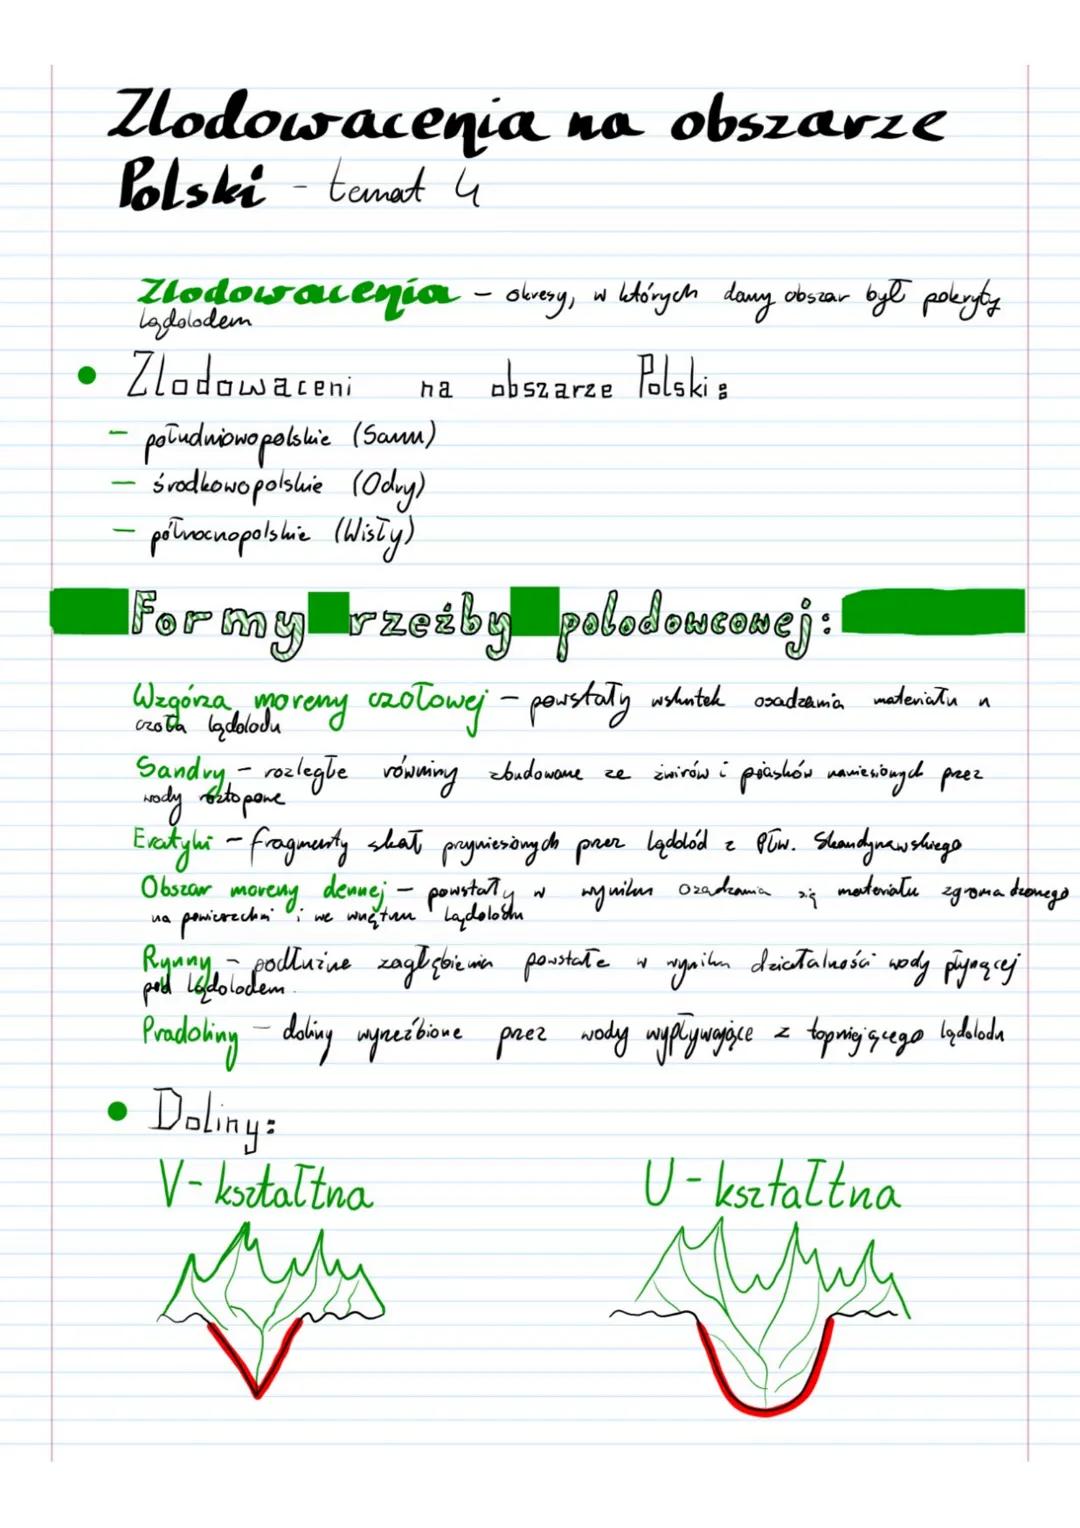 Zlodowacenia na obszarze
Polski - temat 4
Zlodowacenia - okresy, w których dany obszar był pokryty
lądolodem
Zlodowaceni na obszarze Polski:
- południowopolskie (Sanu)
- środkowopolskie (Odry)
- północnopolskie (Wisły)
Formy rzeźby polodowcowej:
Wzgórza moreny czołowej - powstały wskutek osadzania materiału u
czoła lądolodu
Sandry - rozległe równiny zbudowane ze żwirów i piasków naniesionych przez
wody roztopowe
Eratyki - fragmenty skał przyniesionych przez lądolód z Płw. Skandynawskiego
Obszar moreny dennej - powstały w wyniku ozadzania się materiału zgromadzonego
na powierzchni i we wnętrzu lądolodu
Rynny - podłużne zagłębienia powstałe w wyniku działalności wody płynącej
pod lądolodem.
Pradoliny - doliny wyrzeźbione przez wody wypływające z topniejącego lądolodu
Doliny:
V-kształtna U-kształtna